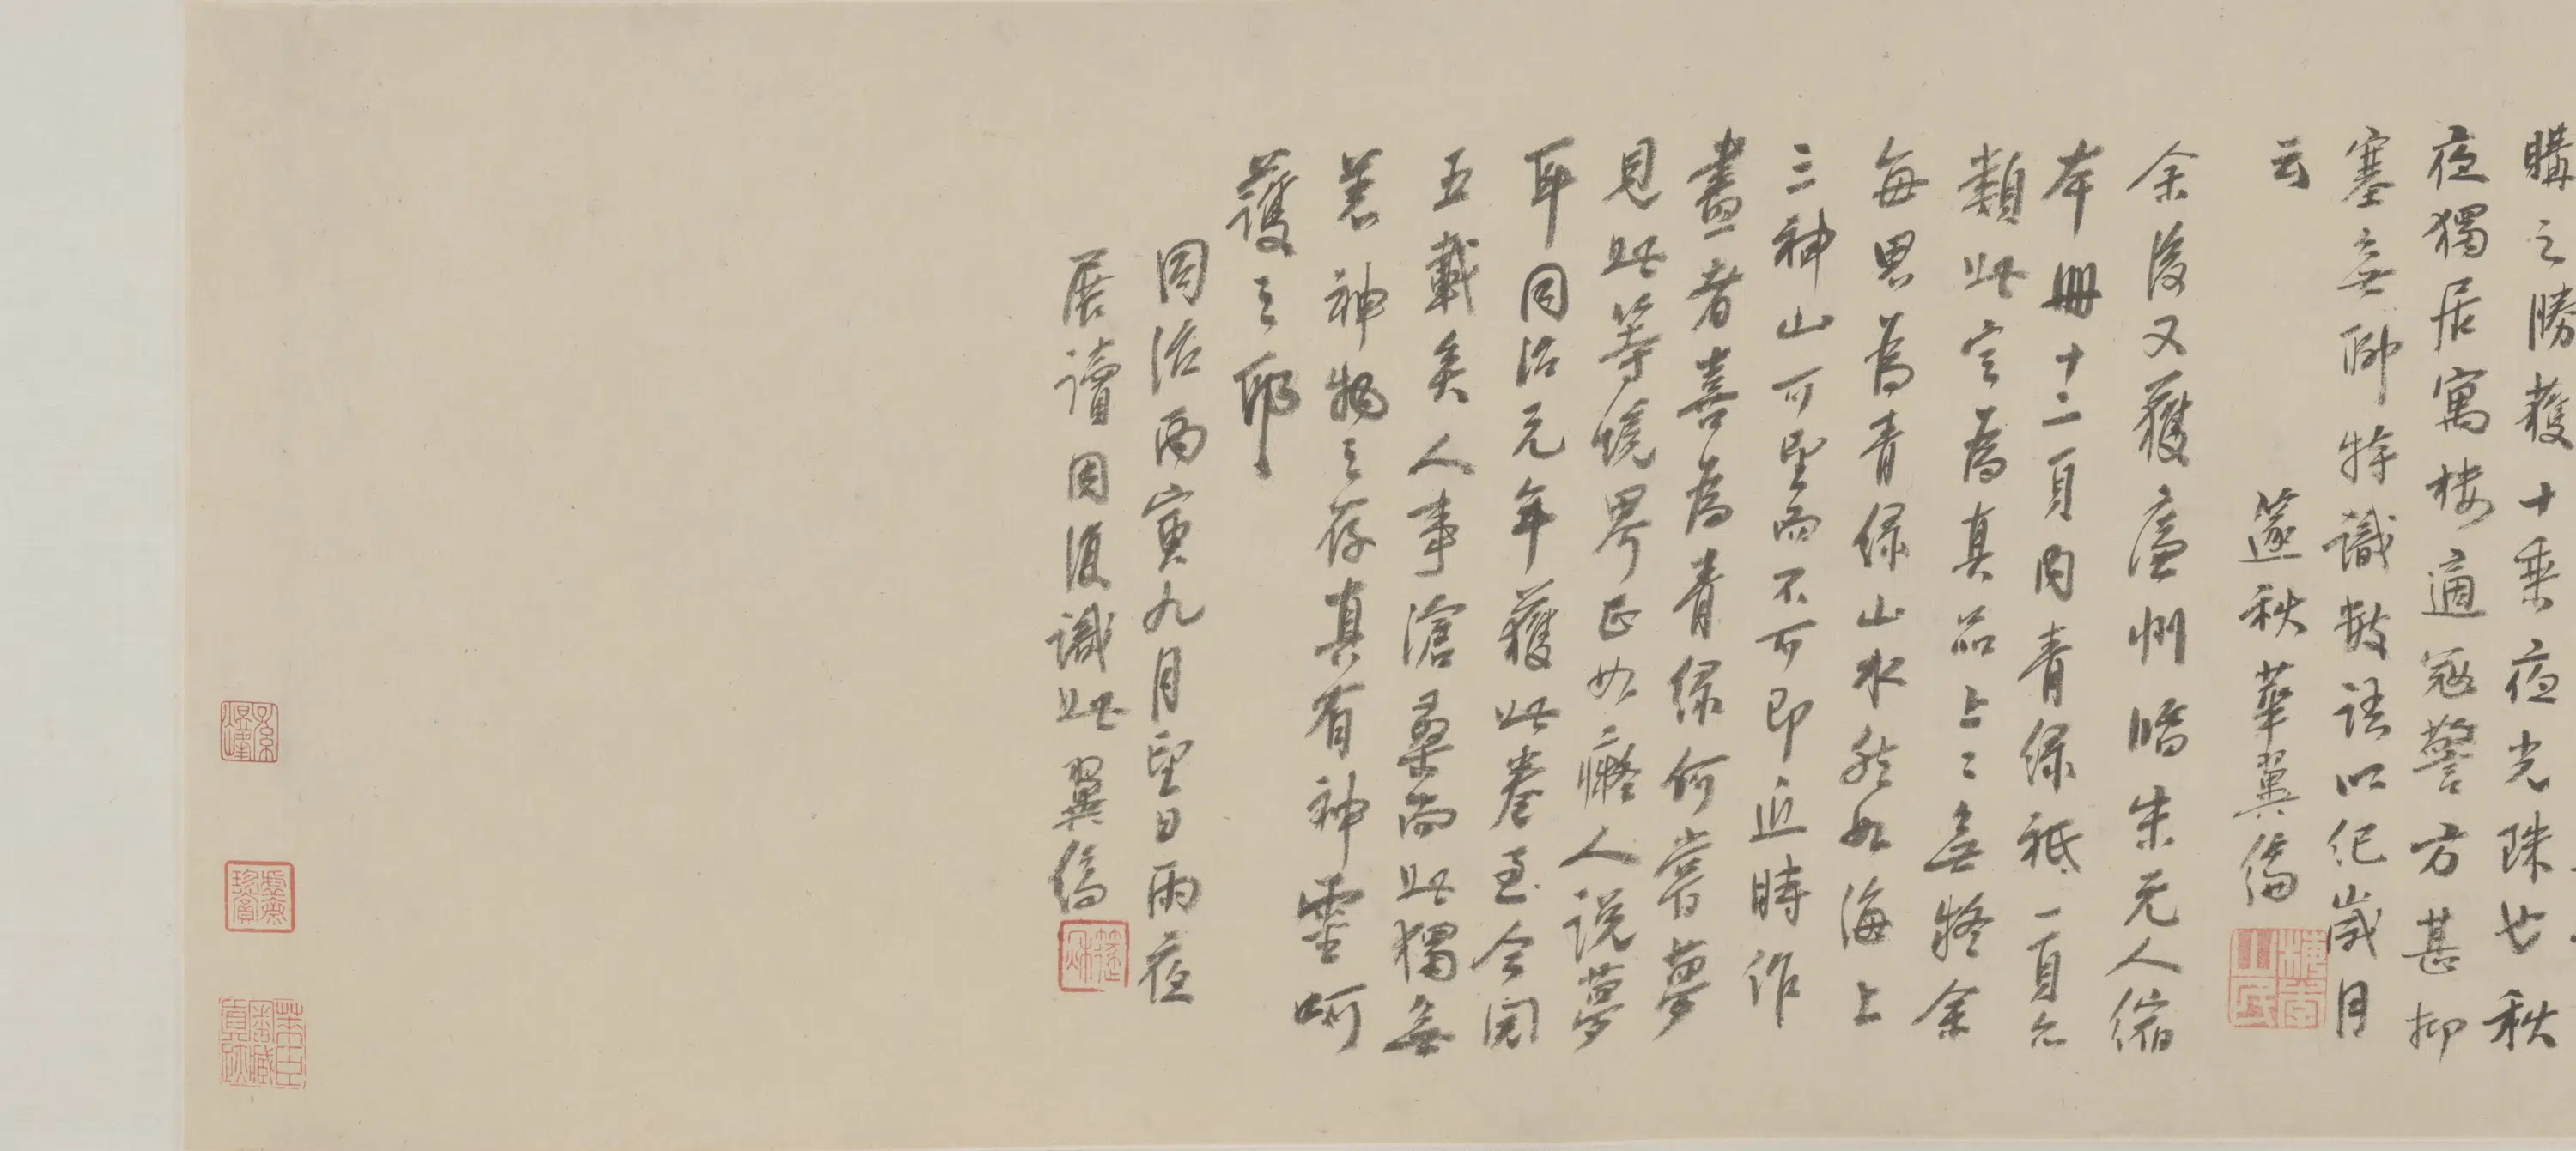 購之勝獲十乘夜光珠也秋
夜獨居寓楼適寇警方甚抑
塞無聊特識數語以紀歲月
云
邃秋華翼綸
余後又獲廉州臨宋元人縮
本冊十二頁內青綠祇一頁亦
類此定為真品上上無疑余
每思為青綠山水然如海上
三神山可望而不可即近時作
畫者喜為青綠何嘗夢
見此等境界正如癡人說夢
耳同治元年獲此卷至今閱
五載矣人事滄桑而此獨無
恙神物之存真有神靈呵
護之耶
同治丙寅九月望日雨夜
展讀因復識此翼綸
棲雲山民
邃秋
孫煜峰
虛齋珍賞
萊臣審藏真跡